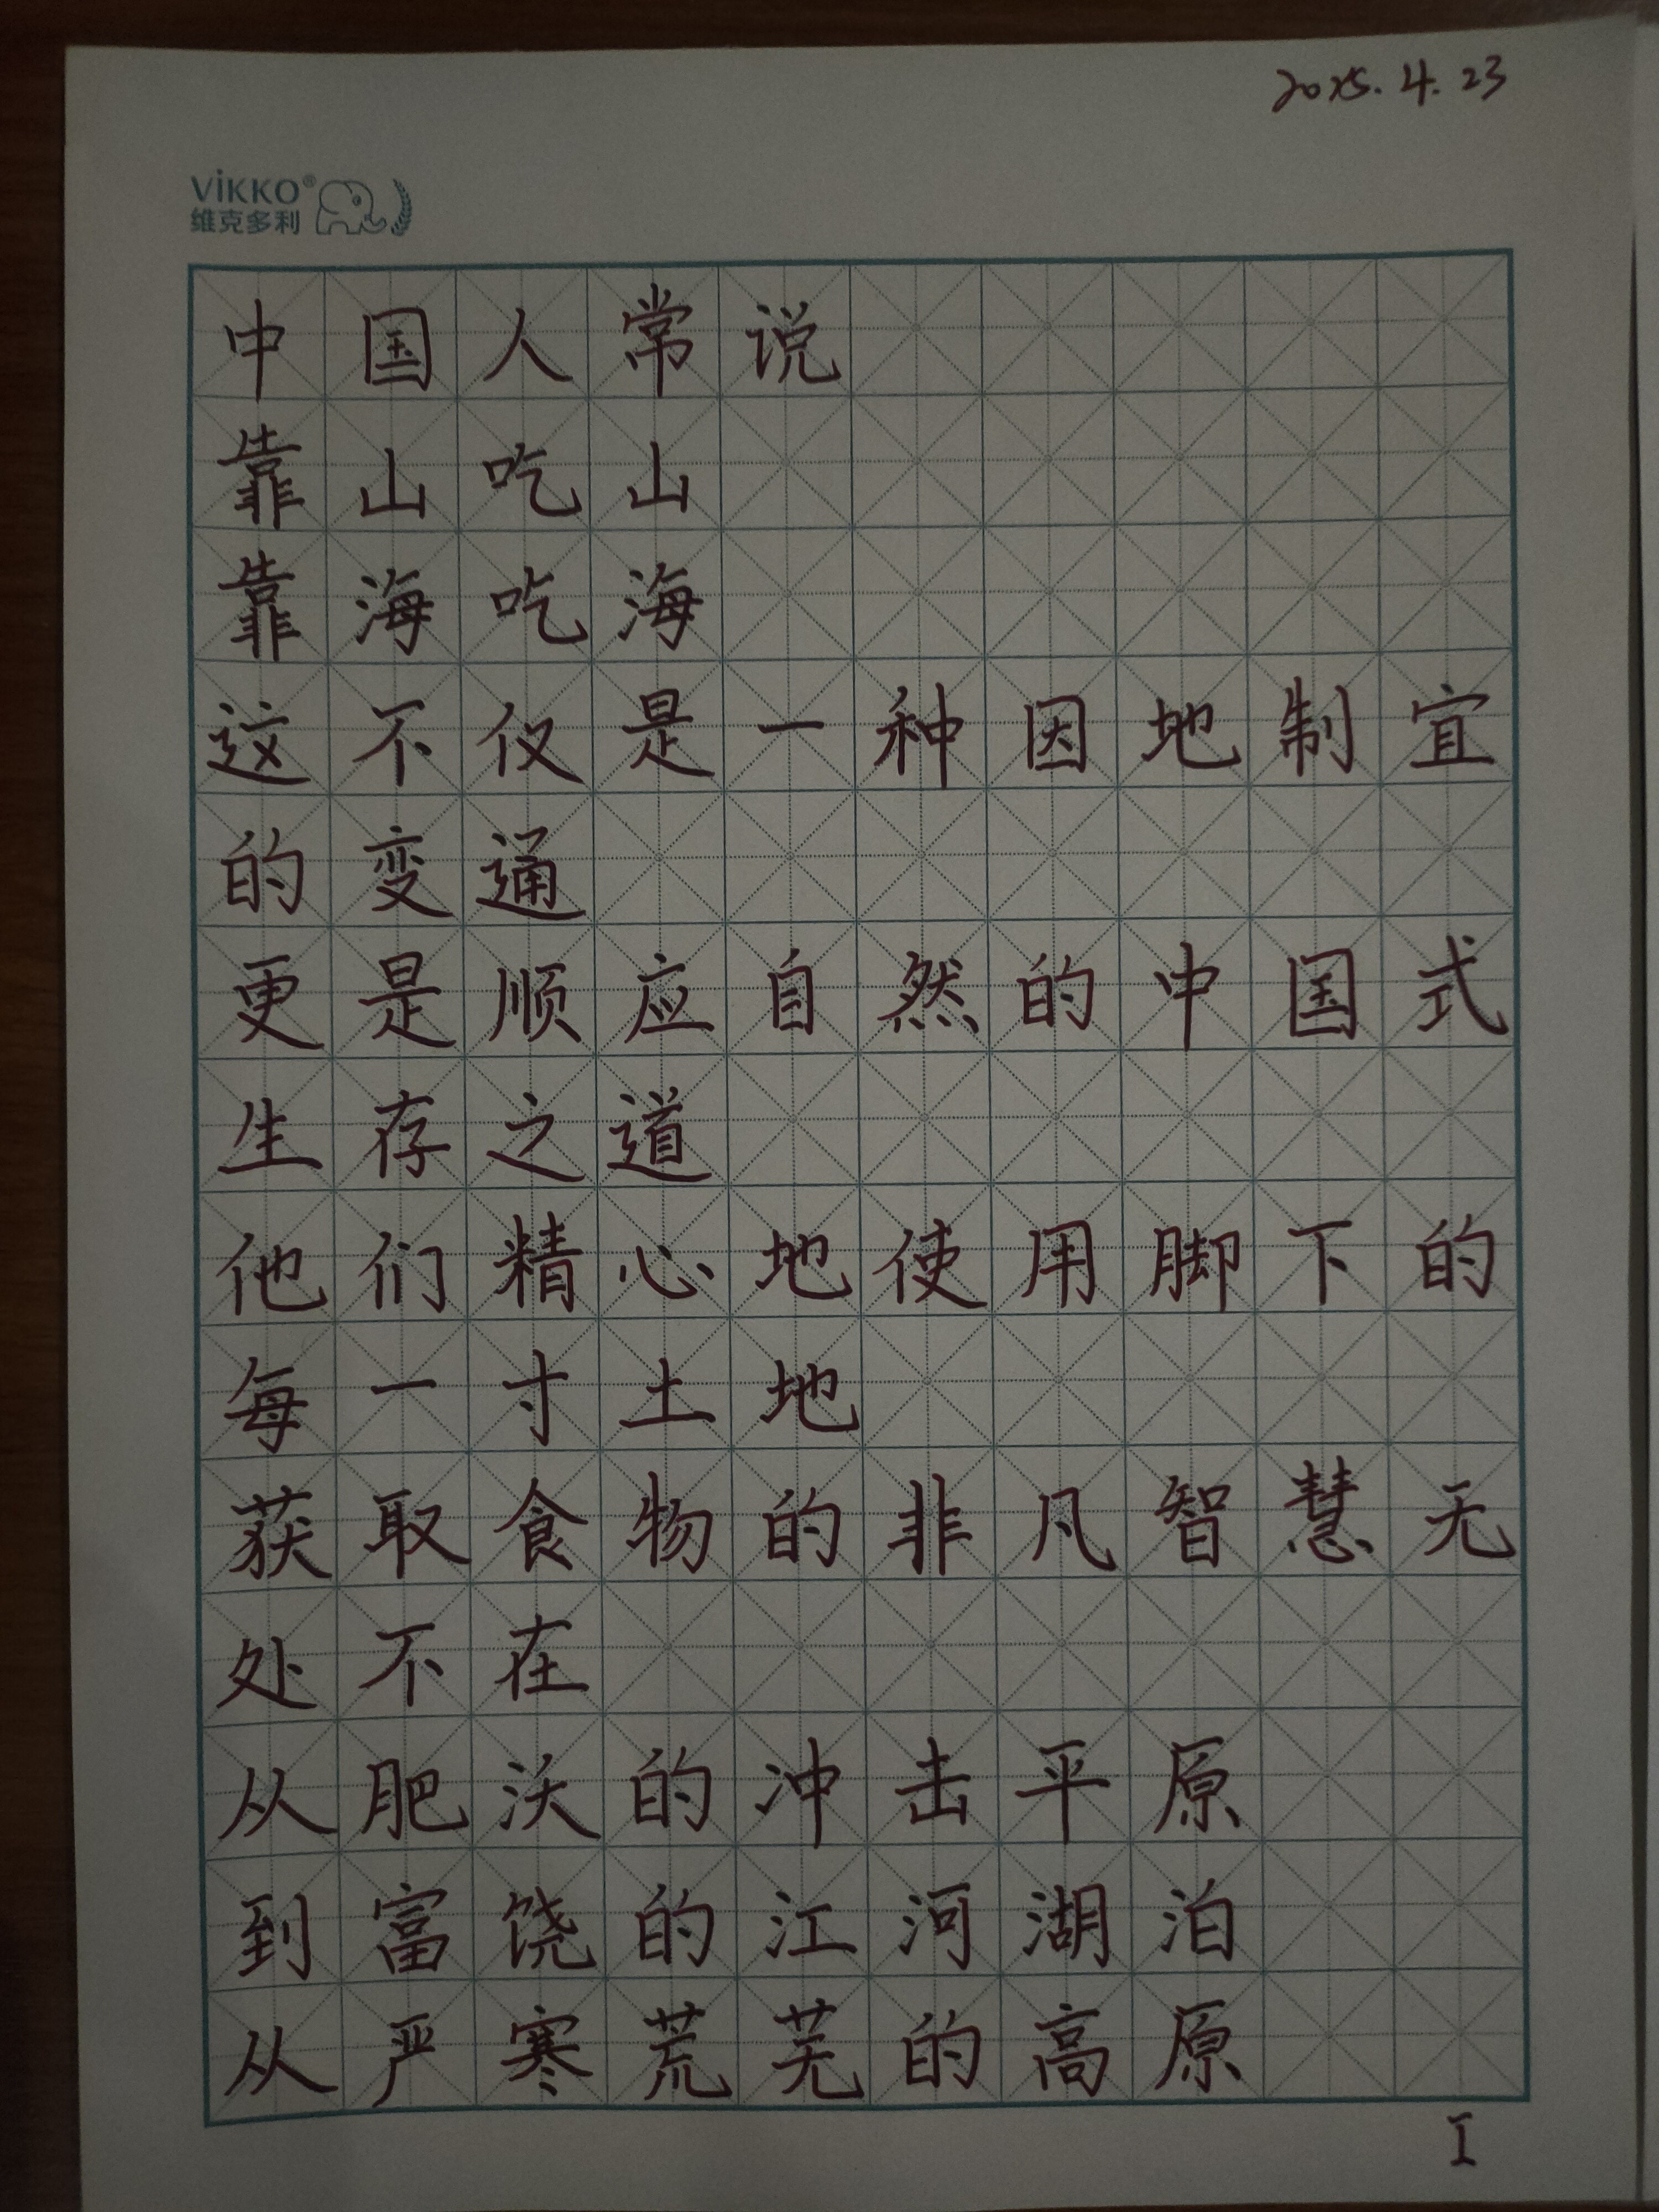 2025.4.23
VIKKO®
维克多利
中国人常说
靠山吃山
靠海吃海
这不仅是一种因地制宜
的变通
更是顺应自然的中国式
生存之道
他们精心地使用脚下的
每一寸土地
获取食物的非凡智慧无
处不在
从肥沃的冲击平原
到富饶的江河湖泊
从严寒荒芜的高原
I